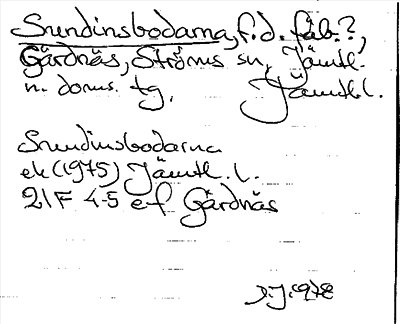 Sundinsbodarna, f.d. fäb.?,
Gärdnäs, Ströms sn, Jämtl.
n. doms. tg, Jämtl.l.
Sundinsbodarna
ek (1975) Jämtl. l.
21F 4-5 e-f Gärdnäs
D.J. 1978